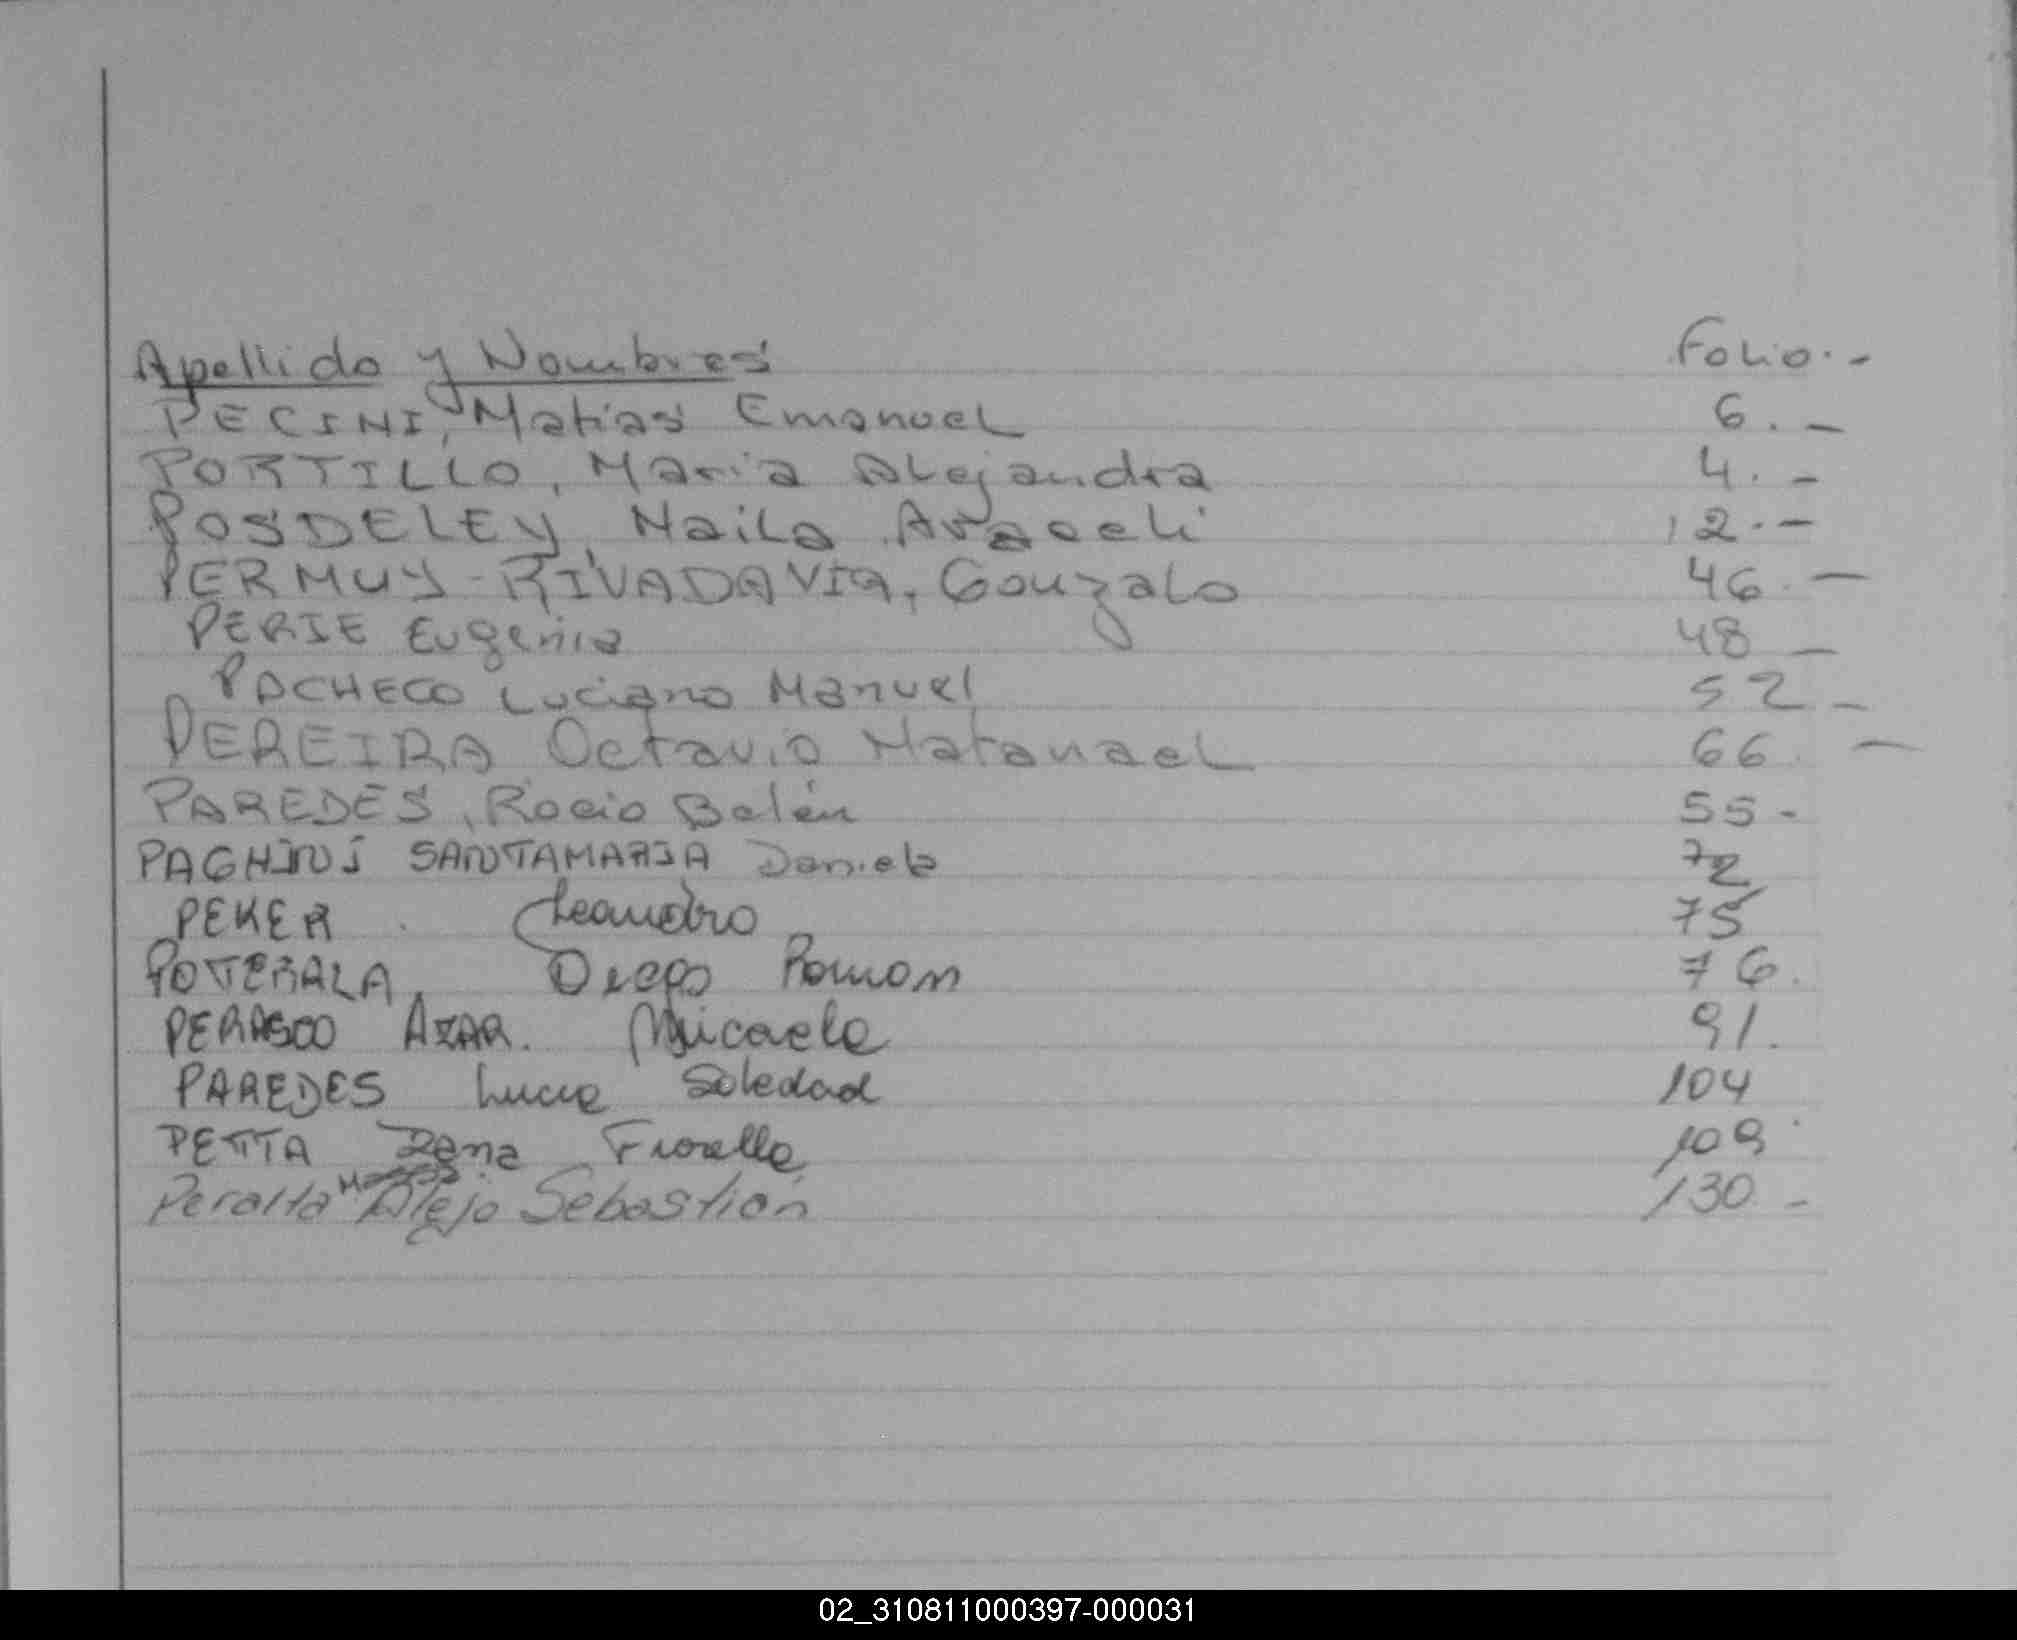 Apellido y Nombres Folio.-
PECINI, Matias Emanuel 6.-
PORTILLO, Maria Alejandra 4.-
POSDELEY, Naila Araceli 12.-
PERMUY-RIVADAVIA, Gonzalo 46.-
PERIE Eugenia 48-
PACHECO Luciano Manuel 52-
PEREIRA Octavio Natanael 66.-
PAREDES, Rocio Belén 55-
PAGHINI SANTAMARIA Daniela 72
PEKER. Leandro 75
POTERALA, Diego Roman 76.
PERASCO AZAR. Micaela 91.
PAREDES Lucia Soledad 104
PETTA Fiorella 109
Peralta Alejo Sebastián 130.-
02_310811000397-000031